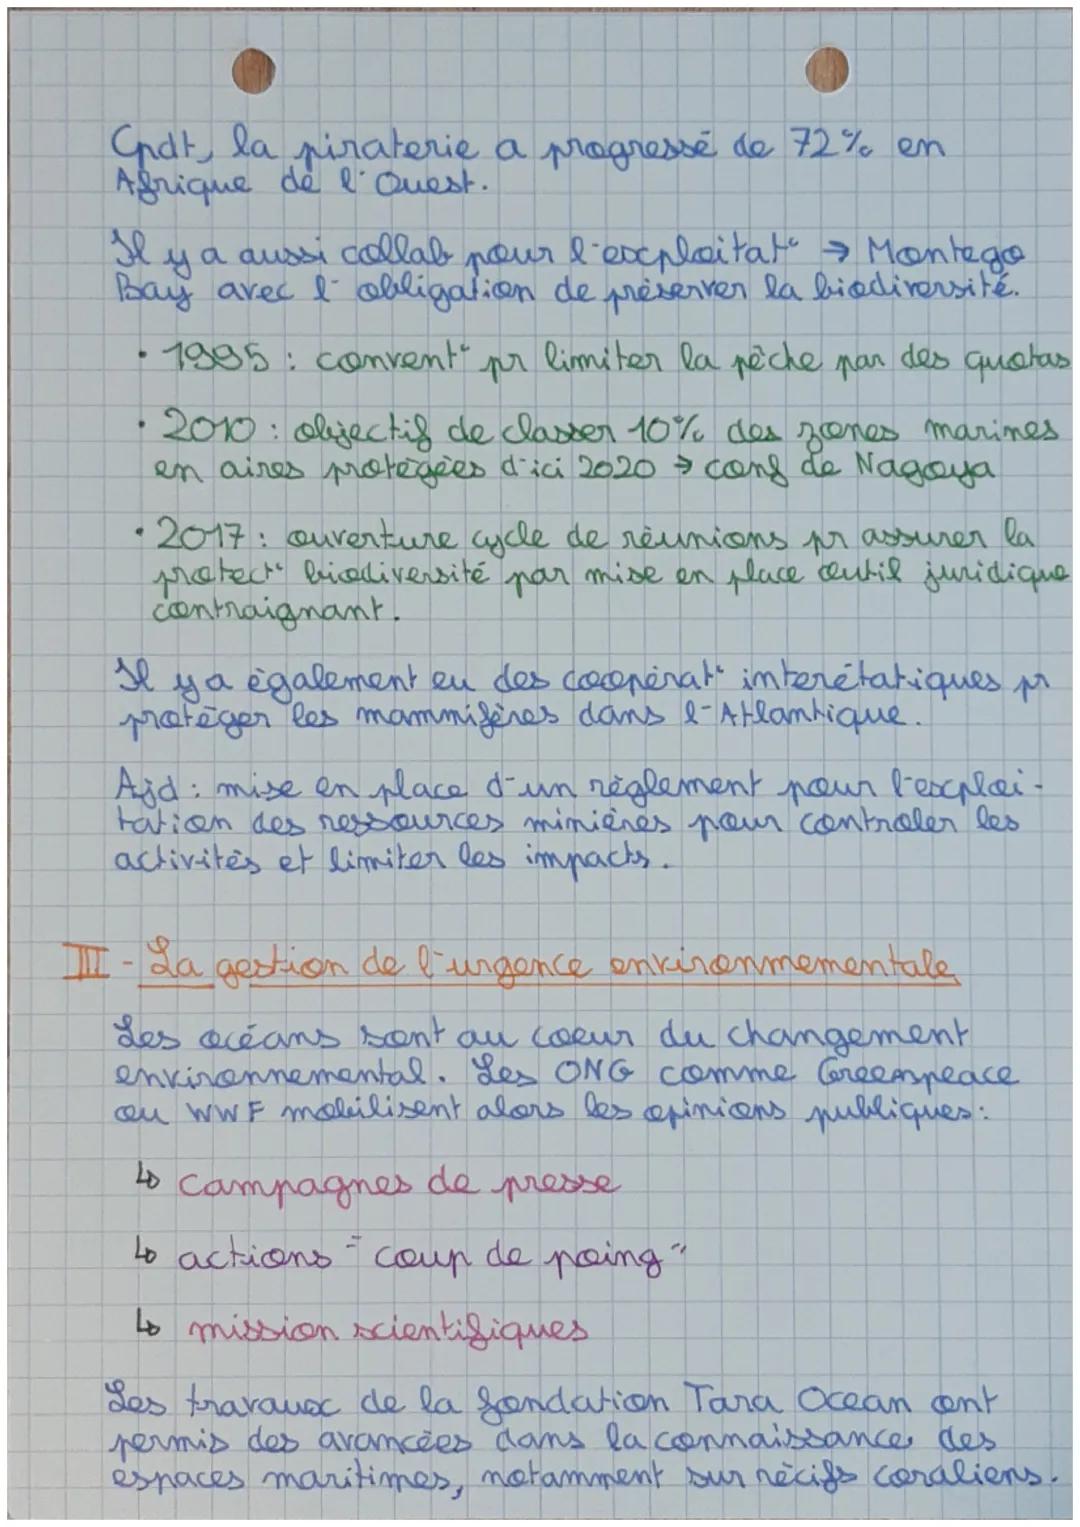 Cpdt, la piraterie a progressé de 72% en
Afrique de l'Ouest.
Il y a aussi collab pour l'exploitat° → Montego
Bay avec l'obligation de préserver la biodiversité.
• 1995 : convent° pr limiter la pêche par des quotas
• 2010 : objectif de classer 10% des zones marines
en aires protégées d'ici 2020 → conf de Nagoya
• 2017 : ouverture cycle de réunions pr assurer la
protect° biodiversité par mise en place outil juridique
contraignant.
Il y a également eu des coopérat° interétatiques pr
protéger les mammifères dans l'Atlantique.
Ajd : mise en place d'un règlement pour l'exploi-
tation des ressources minières pour controler les
activités et limiter les impacts.
III - La gestion de l'urgence environmementale
Les océans sont au coeur du changement
environnemental. Les ONG comme Greenpeace
ou WWF mobilisent alors les opinions publiques :
↳ campagnes de presse
↳ actions "coup de poing"
↳ mission scientifiques
Les travaux de la fondation Tara Ocean ont
permis des avancées dans la connaissance des
espaces maritimes, notamment sur récifs coraliens.